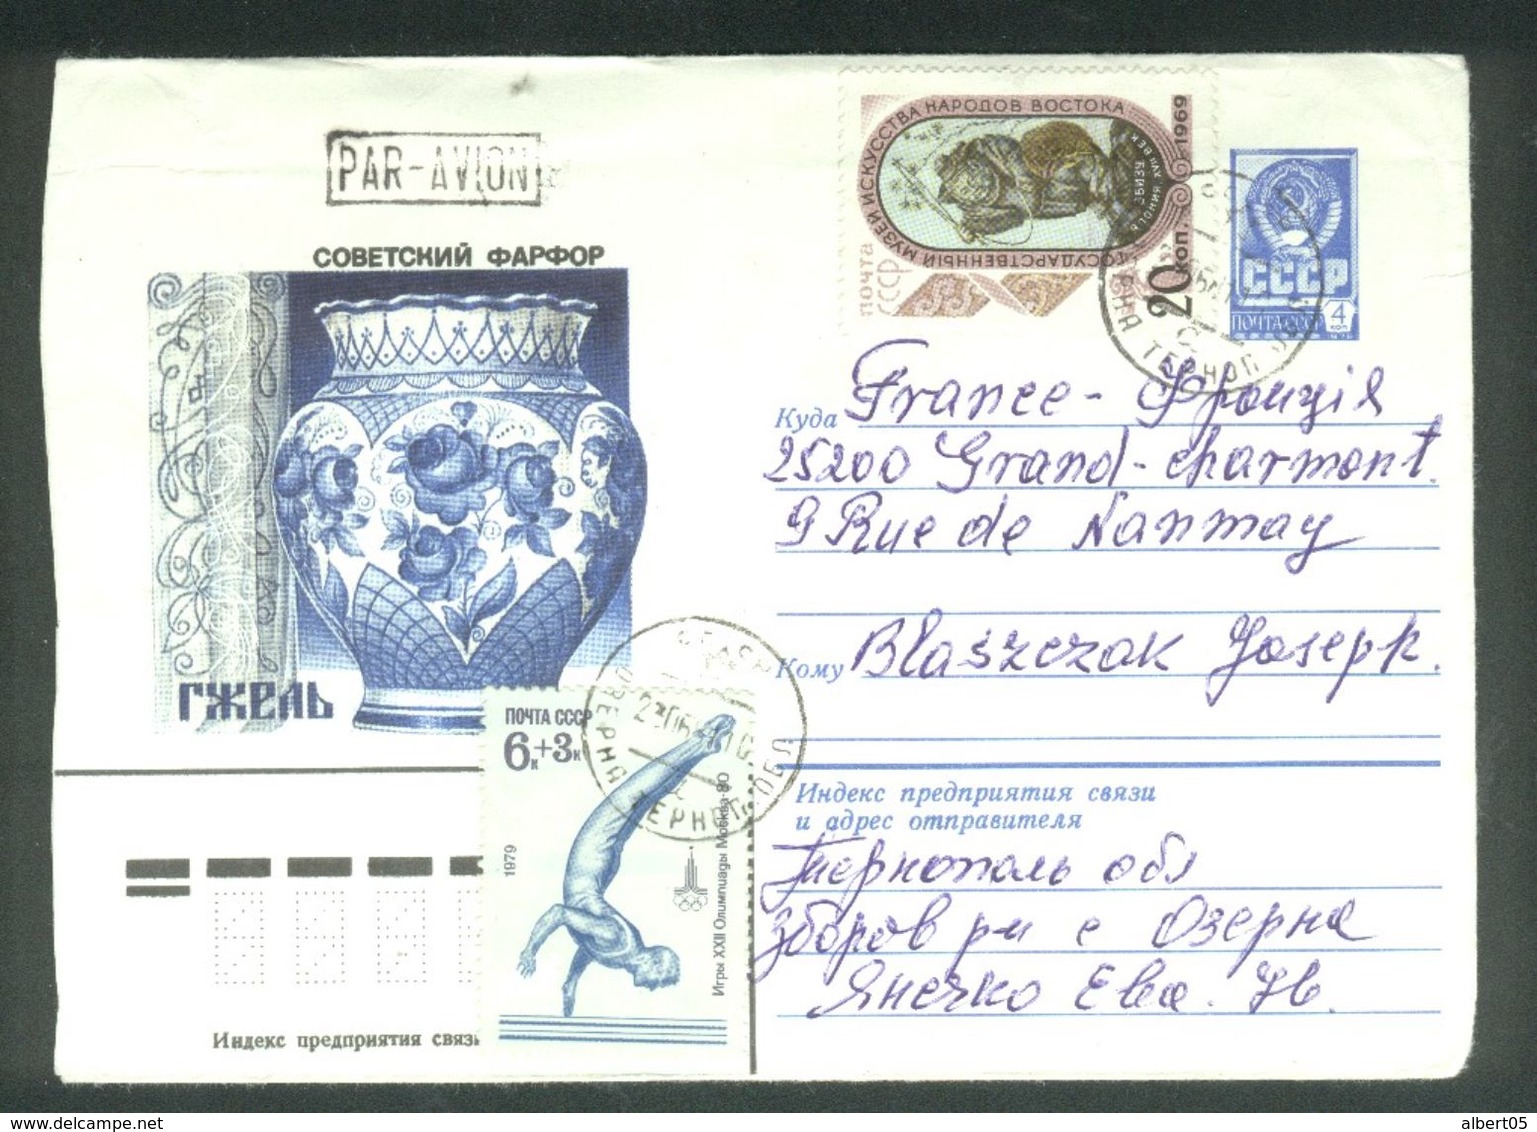 PAR-AVION
СОВЕТСКИЙ ФАРФОР
ГЖЕЛЬ
ГОСУДАРСТВЕННЫЙ МУЗЕЙ ИСКУССТВА НАРОДОВ ВОСТОКА
1969
ПОЧТА
СССР
20 КОП.
СССР
ПОЧТА СССР 4 КОП
Куда France - Франція
25200 Grand-charmont.
9 Rue de Nanmay
Кому Blaszczak Joseph.
ПОЧТА СССР
6к+3к
1979
Игры XXII Олимпиады Москва-80
Индекс предприятия связи
и адрес отправителя
Тернополь обл
Зборов р-н с Озерна
Янечко Ева. Ив.
Индекс предприятия связи
albert05